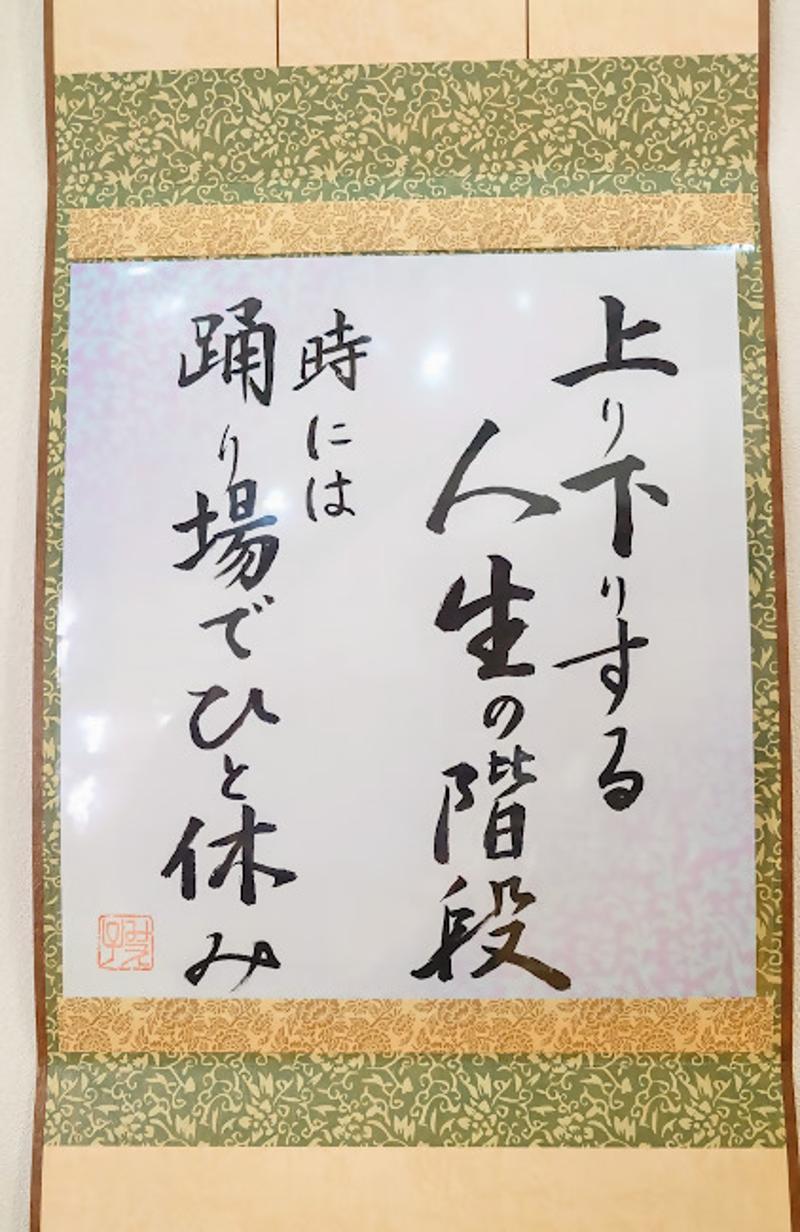 上り下りする
人生の階段
時には
踊り場でひと休み